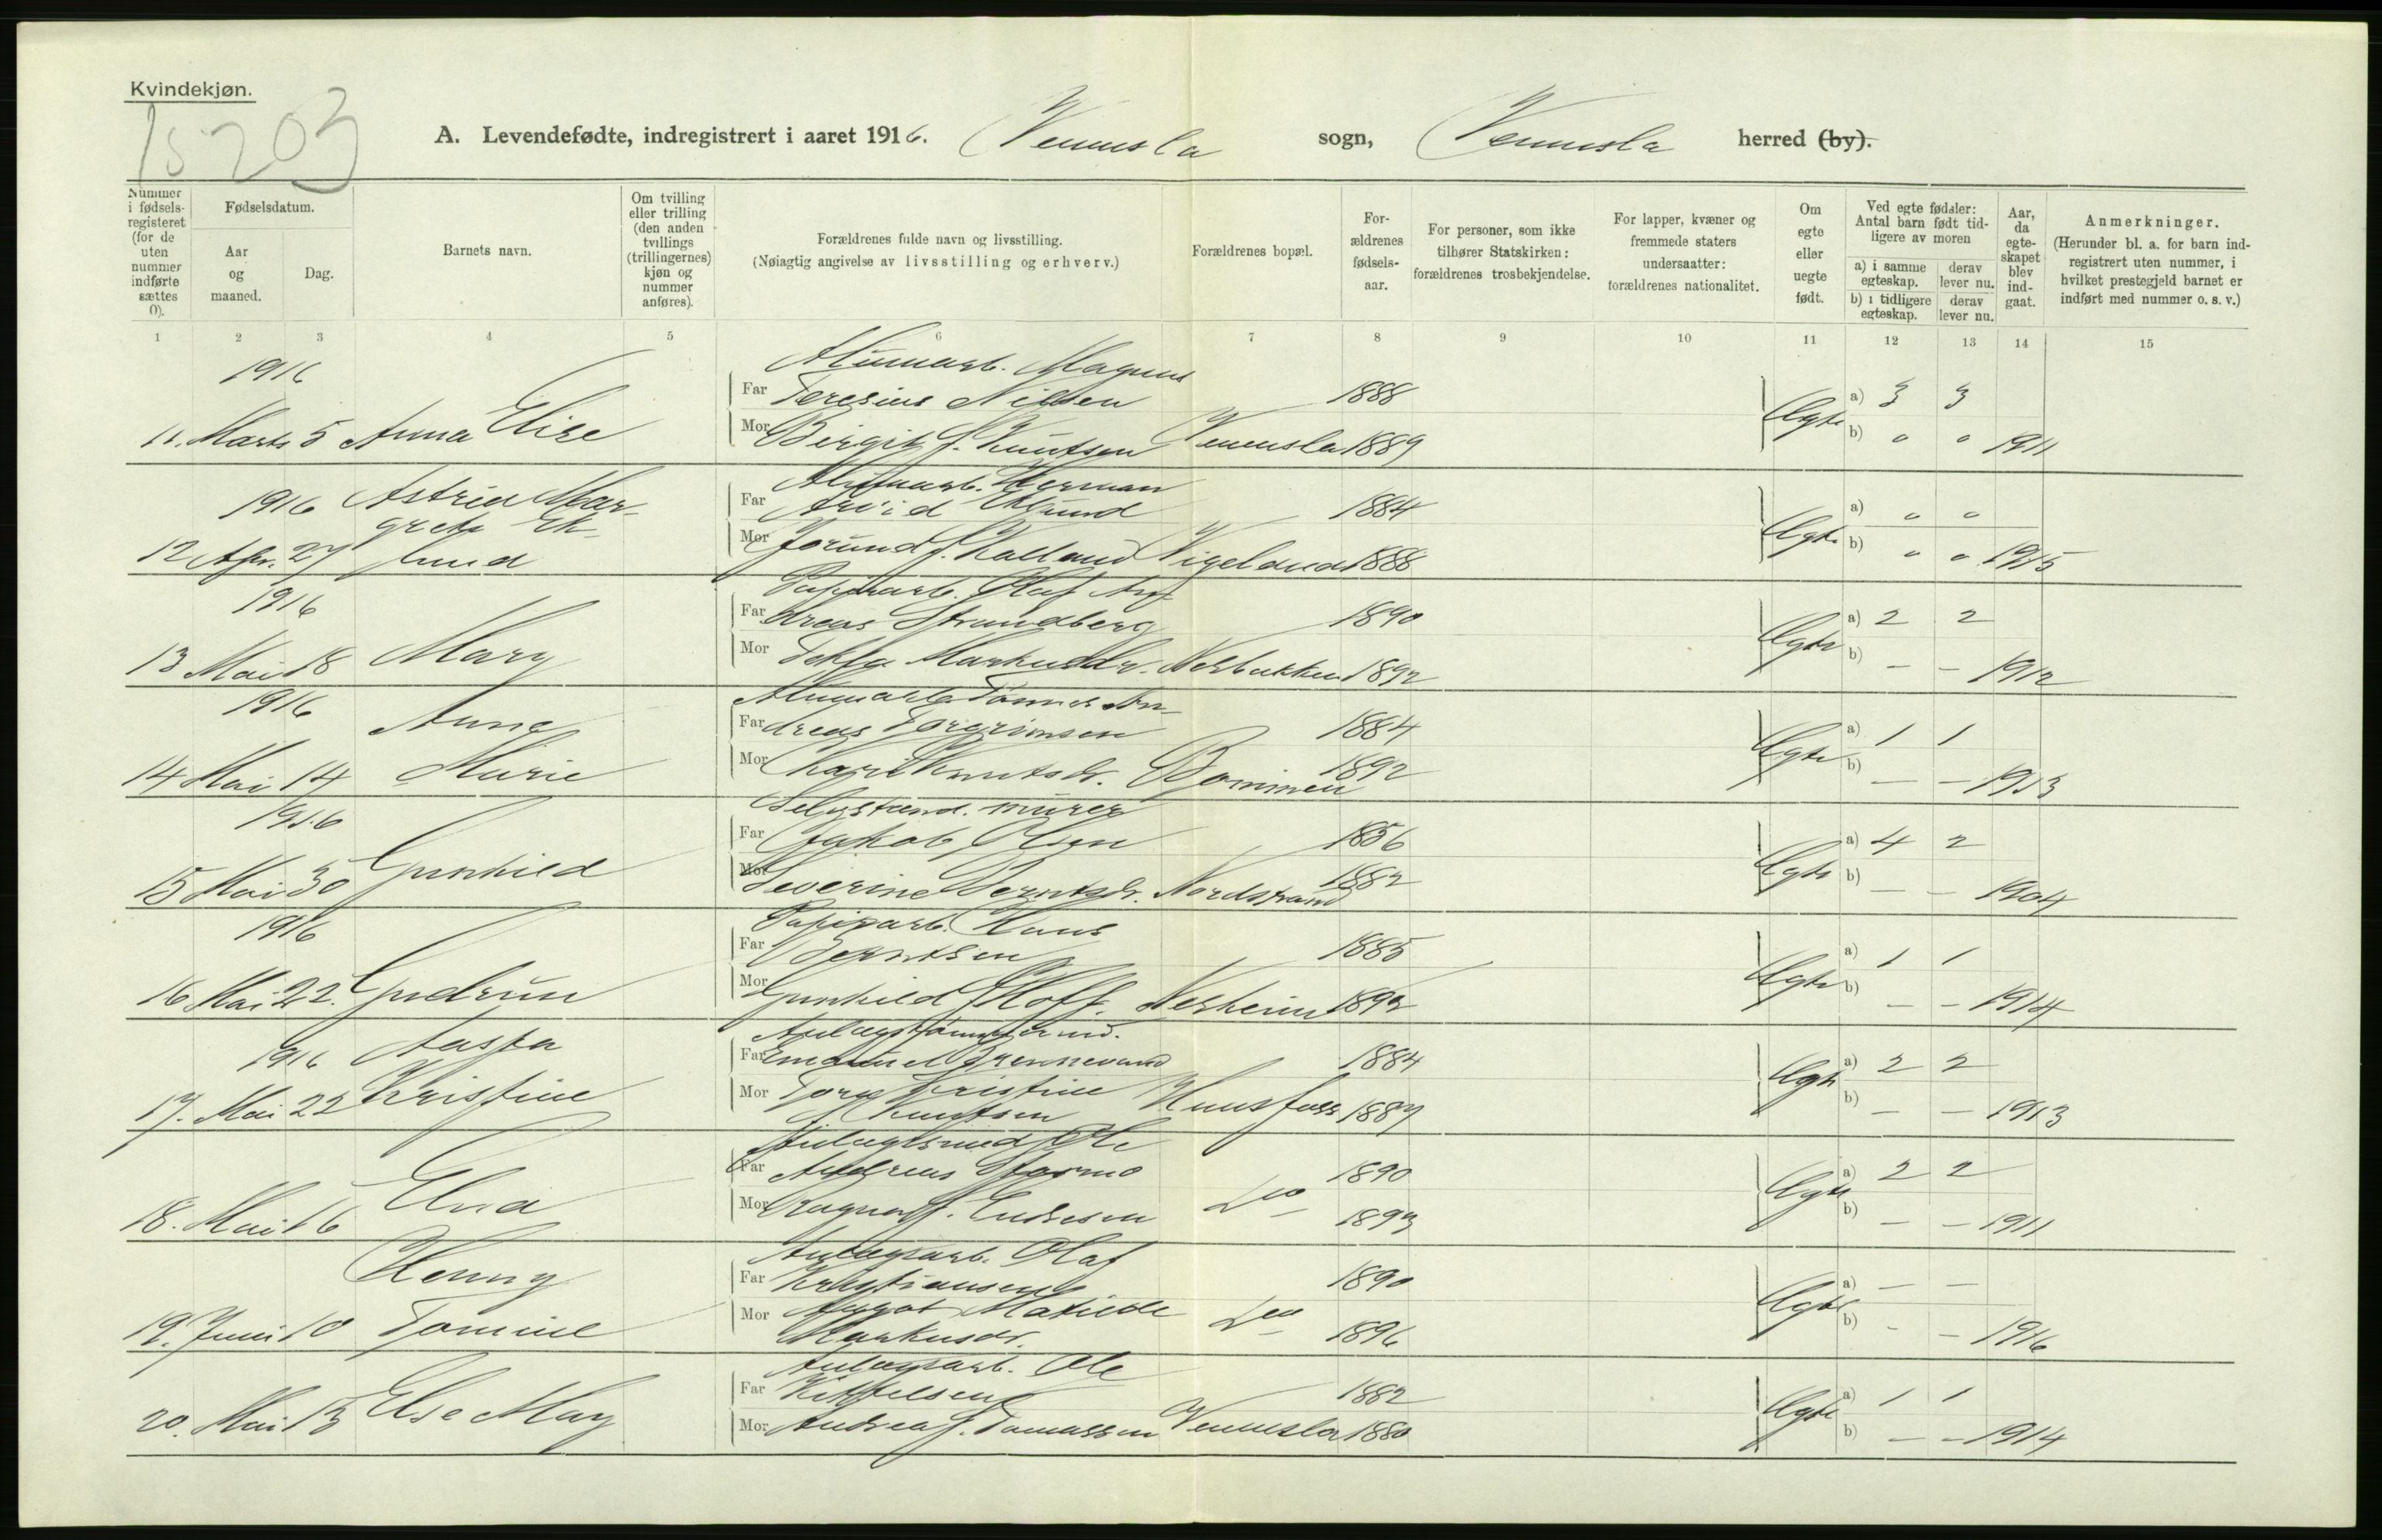 Kvindekjøn.
15203
A. Levendefødte, indregistrert i aaret 1916. Vennesla sogn, Vennesla herred (by).
Nummer i fødsels-registeret (for de uten nummer indførte sættes 0).
Fødselsdatum.
Aar og maaned.
Dag.
Barnets navn.
Om tvilling eller trilling (den anden tvillings (trillingernes) kjøn og nummer anføres).
Forældrenes fulde navn og livsstilling.
(Nøiagtig angivelse av livsstilling og erhverv.)
Forældrenes bopæl.
For-ældrenes fødsels-aar.
For personer, som ikke tilhører Statskirken: forældrenes trosbekjendelse.
For lapper, kvæner og fremmede staters undersaatter: forældrenes nationalitet.
Om egte eller uegte født.
Ved egte fødsler: Antal barn født tid-ligere av moren
a) i samme egteskap.
derav lever nu.
b) i tidligere egteskap.
derav lever nu.
Aar, da egte-skapet blev ind-gaat.
Anmerkninger.
(Herunder bl. a. for barn ind-registrert uten nummer, i hvilket prestegjeld barnet er indført med nummer o. s. v.)
1 2 3 4 5 6 7 8 9 10 11 12 13 14 15
1916 Magnus
Far Teresius Nilsen 1888 a) 3 3
11. Marts 5 Anna Elise Mor Birgit f. Knutsen Vennesla 1889 Egte b) " " 1911
Herman
1916 Astrid Mar- Far Arvid Eklund 1884 a) " "
grete Ek-
12 Apr. 27 lund Mor Jorund f. Kalland Vigeland 1888 Egte b) " " 1915
1916 Papirarb. Olaf An-
Far dreas Strandberg 1890 a) 2 2
13 Mai 18 Mary Mor Tekla Markusdr. Nesbakken 1892 Egte b) — — 1912
1916 An-
Anna Far dreas Torgrimsen 1884 a) 1 1
14 Mai 14 Marie Mor Kari Knutsdr. 1892 Egte b) — — 1913
1916 Selvstænd. murer
Far Jakob Olsen 1856 a) 4 2
15 Mai 30 Gunhild Mor Severine Berntsdr. Nordstrand 1882 Egte b) — — 1904
1916 Papirarb. Hans
Far Berntsen 1885 a) 1 1
16 Mai 22. Gudrun Mor Gunhild Nesheim Egte b) — — 1914
1916 Aasta Far Emanuel 1884 a) 2 2
17. Mai 22 Kristine Mor Tora Kristine Hunsfoss 1887 Egte b) — — 1913
Knutsen
Ole
Far Andreas 1890 a) 2 2
18. Mai 16 Elna Mor Ragna f. Endresen Do 1893 Egte b) — — 1911
Anlægsarb. Olaf
Henny Far Kristiansen 1890 a) — —
19. Juni 10 Tomine Mor Margot Matilde Do 1896 Egte b) - — 1916
Markusdr.
Anlægsarb. Ole
Far Kittelsen 1882 a) 1 1
20. Mai 13 Else May Mor Andrea f. Tomassen Vennesla 1880 Egte b) — — 1914